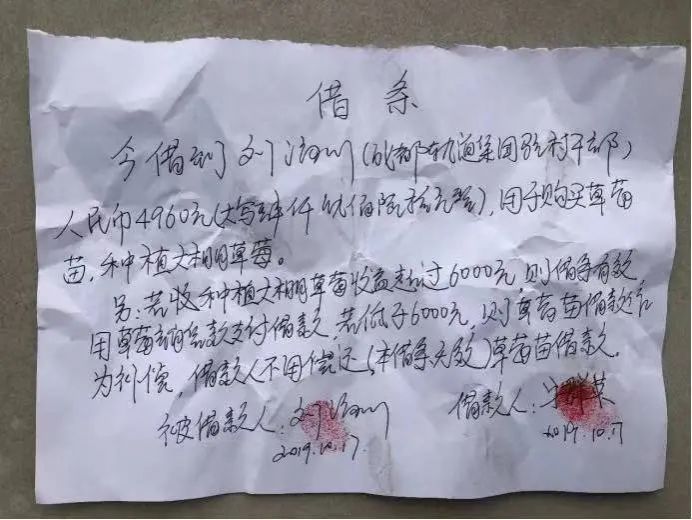 借条
今借到刘治川(成都轨道集团驻村干部)
人民币4960元(大写肆仟玖佰陆拾元整),用于购买草莓
苗,种植大棚草莓。
另:若收种植大棚草莓收益超过6000元,则借条有效
用草莓销售款支付借款,若低于6000元,则草莓苗借款
为补偿,借款人不用偿还(本借条失效)草莓苗借款。
被借款人: 借款人:
2019.10.17. 2019.10.17